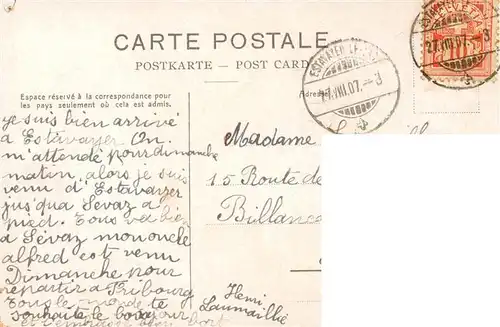 CARTE POSTALE
POSTKARTE — POST CARD
Espace réservé à la correspondance pour
les pays seulement où cela est admis.
Adresse
ESTAVAYER LE LAC
27.VIII.07.-3
HELVETIA
27.VIII.07.-3
je suis bien arrivé
a Estavayer On
m'attendé pour dimanche
matin, alors je suis
venu d'Estavayer
jus qua Sévaz a
pied. Tous va bien
a Sévaz mon oncle
alfred est venu
Dimanche pour
repartir a Fribourg
Tous le monde te
souhaite le bonjour
et t'embrasse bien fort
Henri
Madame
15 Route de
Billanc